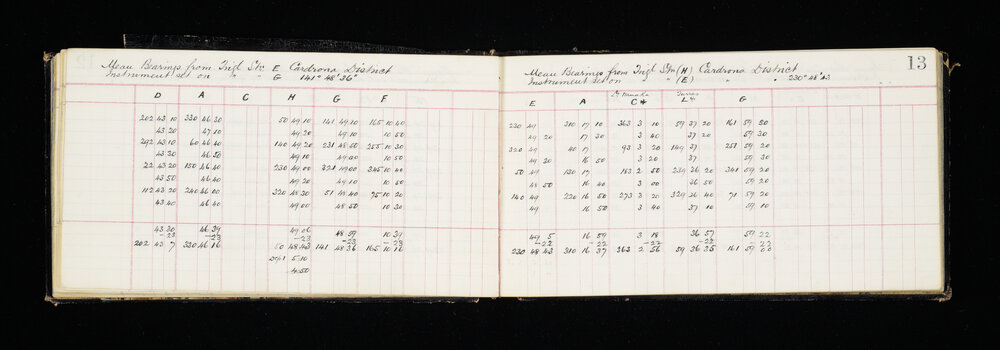 Mean Bearings from Trigl Stn E Cardrona District
Instrument set on " " G 141° 48' 36"
D A C H G F
202 43 10 330 46 30 50 49 10 141 49 10 165 10 40
43 20 47 10 49 20 49 10 10 50
292 43 10 60 46 40 140 49 20 231 48 50 255 10 30
43 20 46 50 49 10 49 00 10 50
22 43 20 150 46 40 230 49 00 321 49 00 345 10 40
43 50 46 40 49 20 49 10 10 50
112 43 20 240 46 00 320 48 30 51 48 40 75 10 20
43 40 46 40 49 00 48 50 10 30
43 30 46 39 49 06 48 59 10 39
-23 -23 -23 -23 -23
202 43 7 330 46 16 50 48 43 141 48 36 165 10 16
5 10
4 50
13
Mean Bearings from Trigl Stn (H) Cardrona District
Instrument set on " (E) " . 230° 48' 43
E A C* L G
230 49 310 17 10 363 3 10 59 37 20 161 59 30
49 20 17 30 3 40 37 20 59 30
320 49 40 17 93 3 20 149 37 251 59 20
49 20 16 50 3 20 37 59 30
50 49 130 17 183 2 50 239 36 20 341 59 20
48 50 16 40 3 00 36 50 59 20
140 49 220 16 50 273 3 20 329 36 40 71 59 20
49 16 50 3 40 37 10 59 10
49 5 16 59 3 18 36 57 59 22
-22 -22 -22 -22 -22
230 48 43 310 16 37 363 2 56 59 36 35 161 59 00